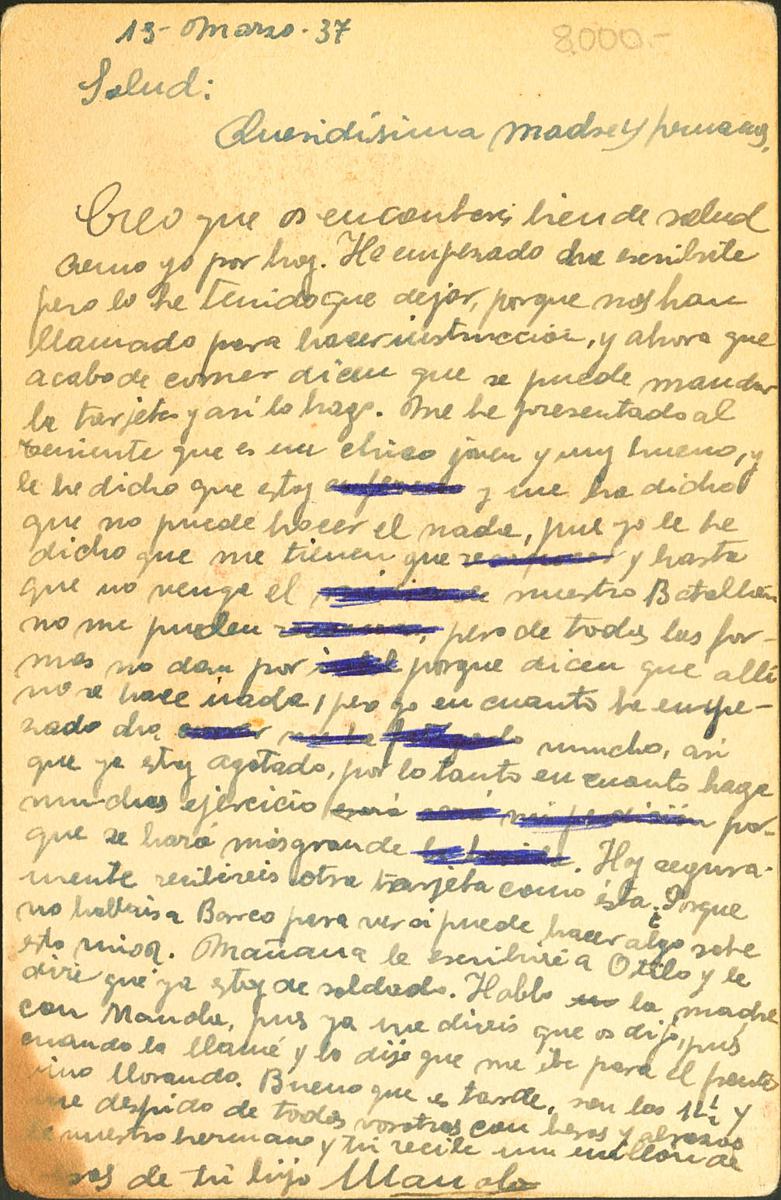 13- Marzo - 37
8000.-
Salud:
Queridísima madre y hermanos,
Creo que os encontreis bien de salud
como yo por hoy. He empezado ha escribirte
pero lo he tenido que dejar, porque nos han
llamado para hacer instruccion, y ahora que
acabo de comer dicen que se puede mandar
la tarjeta y asi lo hago. Me he presentado al
teniente que es un chico joven y muy bueno, y
le he dicho que estoy enfermo y me ha dicho
que no puede hacer el nada, pues yo le he
dicho que me tienen que y hasta
que no venga el nuestro Batallón
no me pueden pero de todas las for-
mas no dan por porque dicen que allí
no se hace nada, pero yo en cuanto he empe-
zado ha mucho, asi
que ya estoy agotado, por lo tanto en cuanto haga
mucho ejercicio será será mi perdición por-
que se hará mas grande la herida. Hoy segura-
mente recibireis otra tarjeta como ésta. ¿Porque
no hablais a Barco para ver si puede hacer algo sobre
esto mior. Mañana le escribiré a Otilo y le
diré que ya estoy de soldado. Hablo la madre
con Manola, pues ya me direis que os dijo, pues
cuando la llamé y la dije que me iba para el frente
vino llorando. Bueno que es tarde, son las y
me despido de todos vosotros con besos y abrazos
de nuestro hermano y tú recibe un millon de
besos de tu hijo Manolo